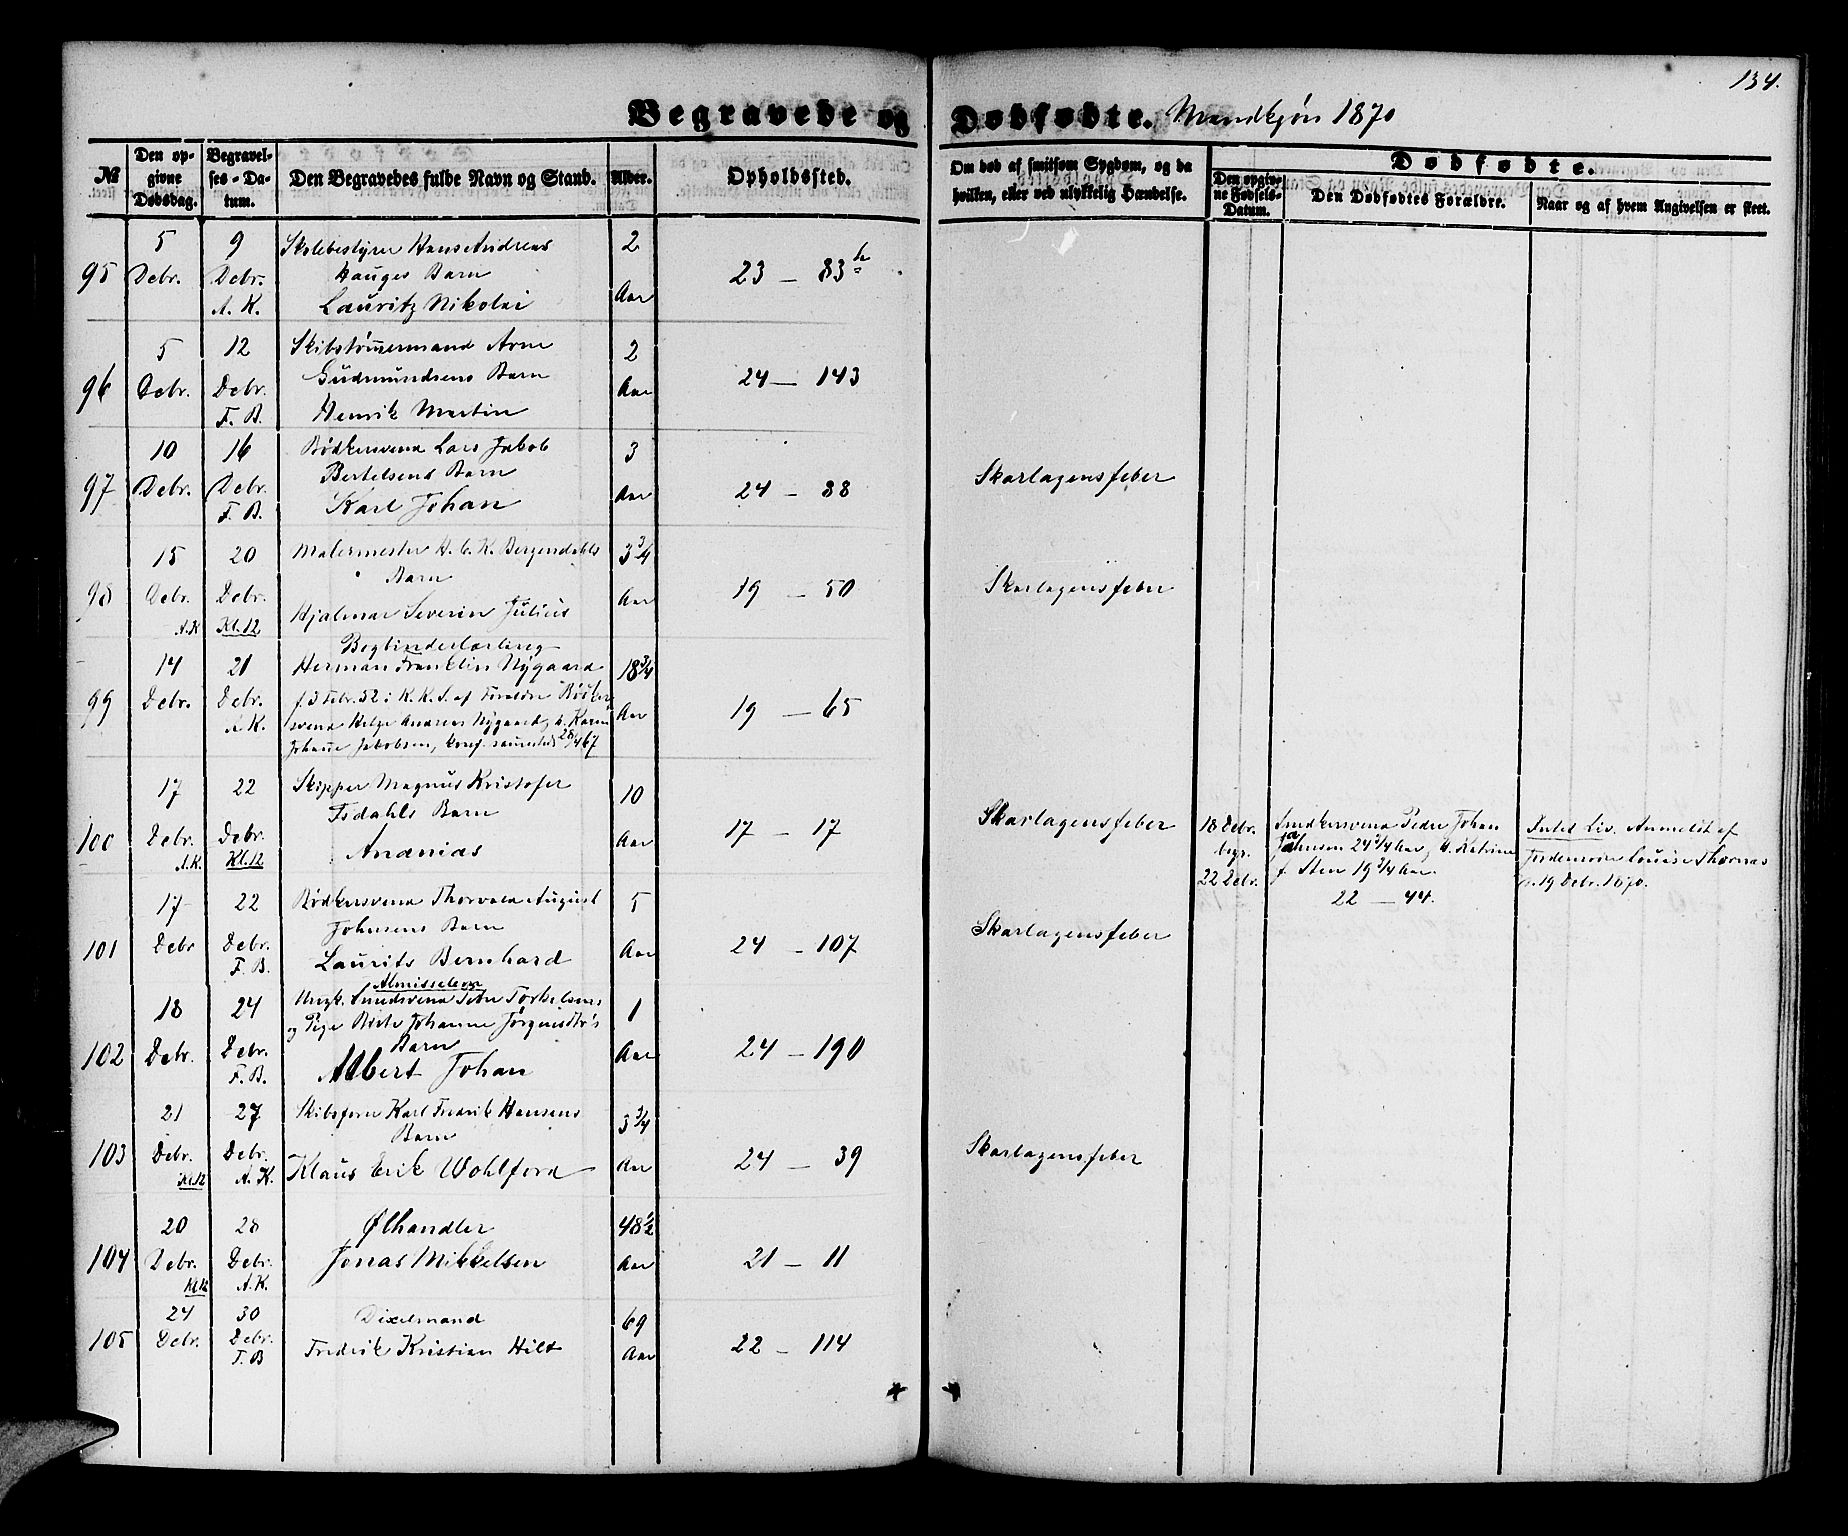 134.
Begravede og Dødfødte. Mandkjøn 1870
№
Den opgivne Dødsdag.
Begravelses-Datum.
Den Begravedes fulde Navn og Stand.
Alder.
Opholdssted.
Om død af smitsom Sygdom, og da hvilken, eller ved ulykkelig Hændelse.
Dødfødte.
Den opgivne Fødsels-Datum.
Den Dødfødtes Forældre.
Naar og af hvem Angivelsen er skeet.
95
5 Debr.
9 Debr. A. K.
Skolebestyrer Hans Andreas
Hauges Barn
Lauritz Nikolai
2 Aar
23 — 83 b
96
5 Debr.
12 Debr. F. B.
Skibstømmermand Arne
Gudmundsens Barn
Henrik Martin
2 Aar
24 — 143
97
10 Debr.
16 Debr. F. B.
Bødkersvend Lars Jakob
Bertelsens Barn
Karl Johan
3 Aar
24 — 88
Skarlagensfeber
98
15 Debr. A.K
20 Debr. Kl. 12
Malermester H. C. K. Bergendahls
Barn
Hjalmar Severin Julius
3 3/4 Aar
19 — 50
Skarlagensfeber
99
14 Debr.
21 Debr. A. K.
Bogbinderlærling
Herman Franklin Nygaard
f. 3 Febr. 52 i K. K. S. af Forældre Bødker
svend Helge Andreas Nygaard, h. Karen
Johanne Jakobsen, konf. sammesteds 28/4 67
18 3/4 Aar
19 — 65
100
17 Debr. A.K.
22 Debr. Kl. 12
Skipper Magnus Kristofer
Isdahls Barn
Ananias
10 Aar
17 — 17
Skarlagensfeber
18 Debr.
begr.
22 Debr.
Snedkersvend Peder Johan
Johnsen 24 3/4 Aar, H. Katrine
f. Sten 19 3/4 Aar.
22 — 44.
Intet Liv. Anmeldt af
Jordemoder Louise Thornæs
d. 19 Debr. 1870.
101
17 Debr
22 Debr. F. B.
Bødkersvend Thorvald August
Johnsens Barn
Laurits Bernhard
5 Aar
24 — 107
Skarlagensfeber
102
18 Debr.
24 Debr. F. B.
Almisselem
Ungk. Smedsvend Peder Torkelsens
og Pige Berte Johanne Jørgensdtr's
Barn
Albert Johan
1 Aar
24 — 190
103
21 Debr. Kl. 12
27 Debr. A. K.
Skibsfører Karl Fredrik Hansens
Barn
Klaus Erik Wohlford
3 3/4 Aar
24 — 39
Skarlagensfeber
104
20 Debr. Kl. 12
28 Debr. A. K.
Ølhandler
Jonas Mikkelsen
48 1/2 Aar
21 — 11
105
24 Debr.
30 Debr. F. B
Dixelmand
Fredrik Kristian Hilt
69 Aar
22 — 114